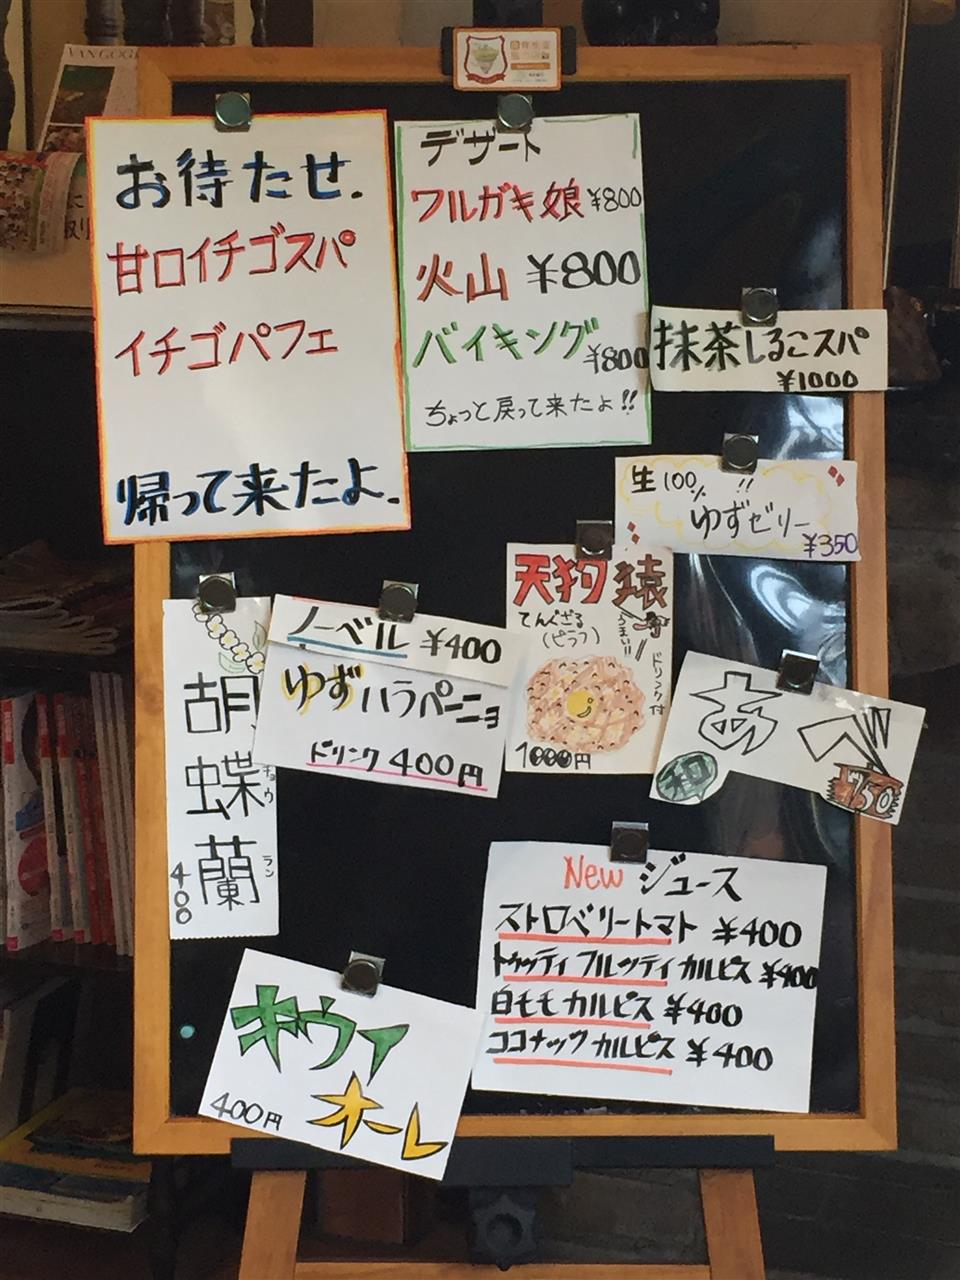 お待たせ.
甘口イチゴスパ
イチゴパフェ
帰って来たよ.
デザート
ワルガキ娘 ¥800
火山 ¥800
バイキング ¥800
ちょっと戻って来たよ!!
抹茶しるこスパ
¥1000
生100%!!
ゆずゼリー
¥350
天狗猿
てんぐざる
(ピラフ)
うまい!!
ドリンク付
1000円
ノーベル ¥400
ゆずハラペーニョ
ドリンク 400円
胡蝶蘭
チョウ
ラン
400
あべ
和
750
New ジュース
ストロベリートマト ¥400
トゥッティフルッティカルピス ¥400
白ももカルピス ¥400
ココナックカルピス ¥400
キウイ
オーレ
400円
VAN GOGH